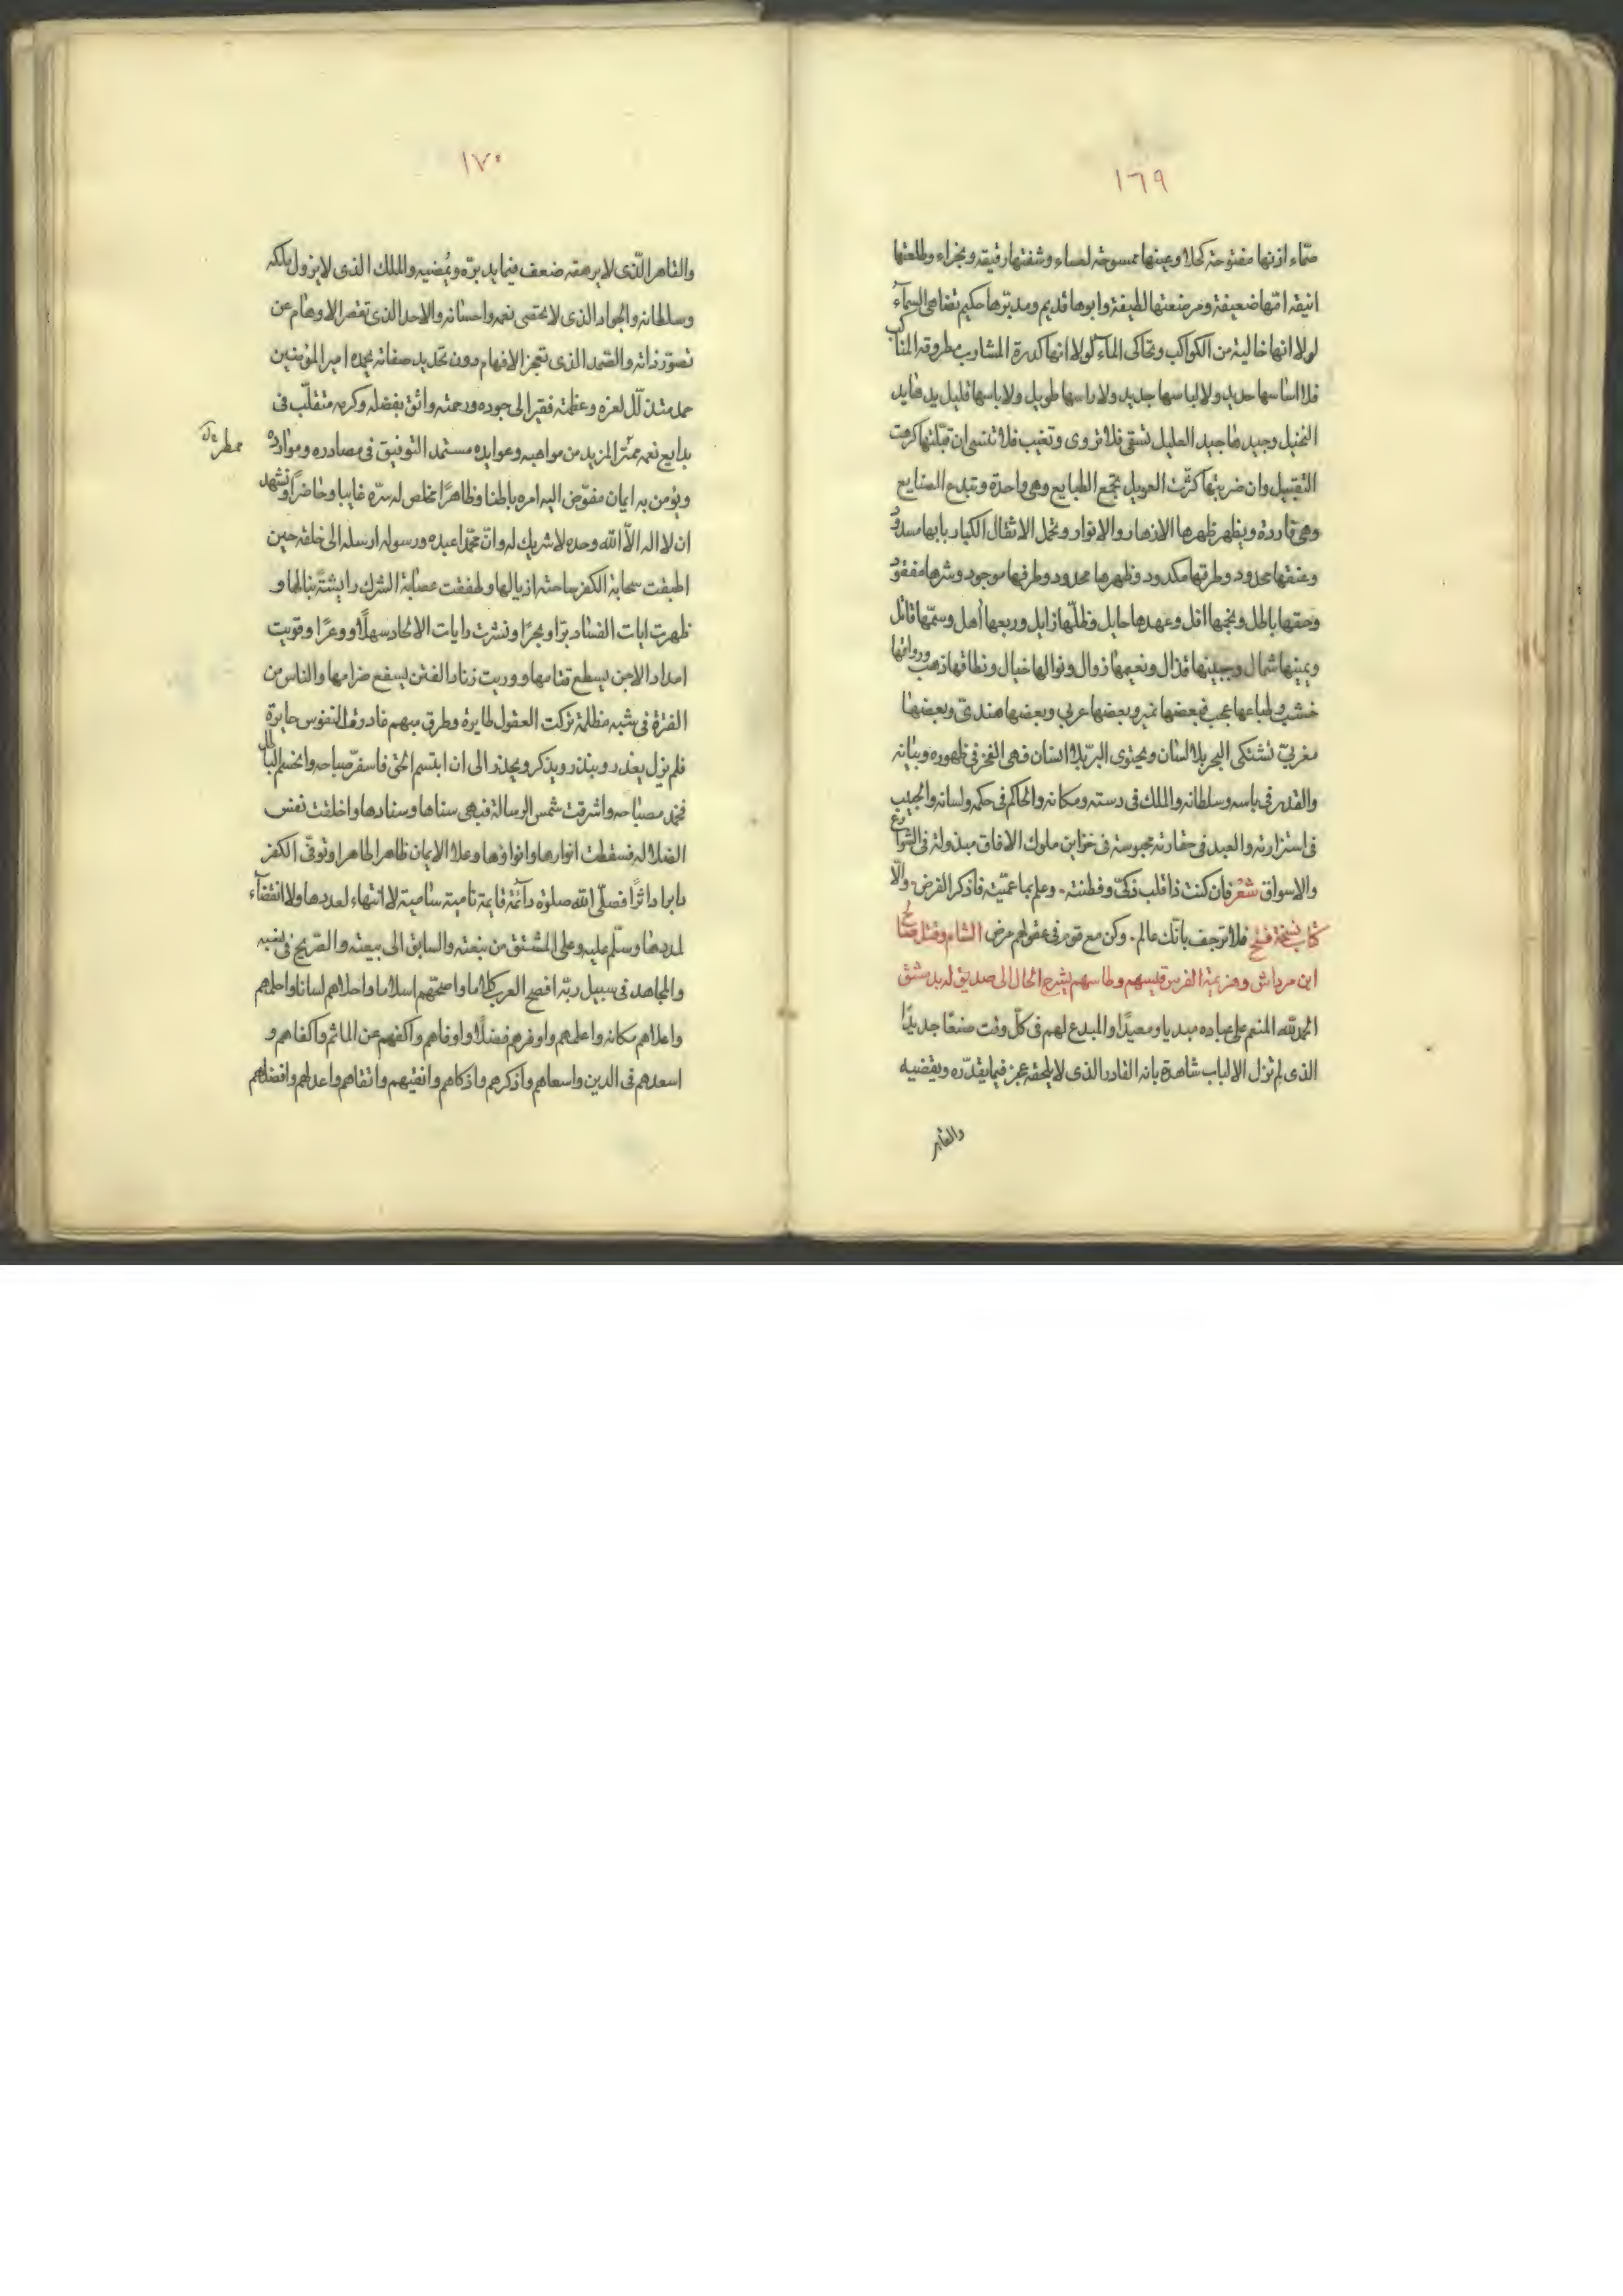 ١٦٩
صماء اذنها مفتوحة كحلا وعينها ممسوحة لعساء وشفتها رقيقه ونجزاء وطلعتها
انيقه امّها ضعيفة ومرضعتها لطيفة وابوها قديم ومدبّرها حكيم تضاهى السمآء
لولا انها خالية من الكواكب وتحاكى المآء لولا انها كدرة المشارب مطروقه المناكب
فلا اساسها حديد ولا لباسها جديد ولا راسها طويل ولا باسها قليل يدها يد
البخيل وجيدها جيد العليل تسقى فلا تروى وتغيب فلا تنسى ان قبّلتها كرهت
التقبيل وان ضربتها كثّرت العويل تجمع الطبايع وهى واحدة وتبدع الصنايع
وهى قاردة ويظهر ظهرها الازهار والانوار وتحمل الاثقال الكبار بابها مسدود
وعنقها محدود وطرقها مكدود وظهرها ممدود وطرفها موجود وشرها مفقود
وحقها باطل ونجمها افل وعهدها حايل وظلّها زايل وربعها آهل وسمّها قاتل
ويمينها شمال وجبينها قذال ونعيمها زوال ونوالها خيال ونطاقها ذهب ورواقها
خشب وطباعها عجب فبعضها نمير وبعضها عربي وبعضها هندىّ وبعضها
مغربىّ تشتكى البحر بلا لسان ويحتوى البرّ بلا انسان فهى الفخر فى ظهوره وبيانه
والقدر فى باسه وسلطانه والملك فى دسته ومكانه والحاكم فى حكمه ولسانه والحبيب
فى استزارته والعبد فى حقارته محبوسة فى خزاين ملوك الافاق مبذولة فى الشوارع
والاسواق شعر فان كنت ذا قلب ذكىّ وفطنته وعلم بما عمّيته فاذكر الفرض والّا
فلا ترجف بانّك عالم وكن مع قوم فى عقولهم مرض كتاب نسخة فتح الشام وقتل صالح
ابن مرداش وهزيمة الفرس قليسهم وطاسهم يشرح الحال الى صديق له بدمشق
الحمد لله المنعم على عباده مبديا ومعيدًا والمبدع لهم فى كلّ وقت صنعًا جديدًا
الذى لم تزل الالباب شاهدة بانه القادر الذى لا يلحقه عجز فيما يقدّره ويقضيه
والقاهر
١٧٠
والقاهر الّذى لا يرهقه ضعف فيما يدبرّه ويُمضيه والملك الذى لا يزول ملكه
وسلطانه والجواد الذى لا تحصى نعمه واحسانه والاحد الذى تقصر الاوهام عن
تصوّر ذاته والصّمد الذى تعجز الافهام دون تحديد صفاته يحمده امير المؤمنين
حمد متذلّل لعزه وعظمته فقير الى جوده ورحمته واثق بفضله وكرمه متقلّب فى
بدايع نعمه ممتر المزيد من مواهبه وعوايده مستمد التوفيق فى مصادره وموارده
ممطر
ويؤمن به ايمان مفوّض اليه امره باطنا وظاهرًا مخلص له سرّه غايبا وحاضرًا ونشهد
ان لا اله الّا الله وحده لا شريك له وانّ محمّدا عبده ورسوله ارسله الى خلقه حين
اطبقت سحابة الكفر ساحته اذيالها وطفقت عصابة الشرك رايشة نبالها و
ظهرت ايات الفساد برّا وبحرًا ونشرت رايات الالحاد سهلًا ووعرًا وقويت
امداد الاحن يسطع قتامها ووريت زناد الفتن يسفع ضرامها والناس من
الفترة فى شبه مظلمة تركت العقول طايرة وطرق مبهم غادرت النفوس حايرة
فلم يزل يعذر وينذر ويذكر ويحذر الى ان ابتسم الحق فاسفر صباحه وانحسم الباطل
فخمد مصباحه واشرقت شمس الرسالة فبهى سناها وسنادها واخلقت نفس
الضلاله فسقطت انوارها وانواؤها وعلا الايمان ظاهرا طاهرا وتوفّى الكفر
دابرا داثرًا فصلّى الله صلوة دآئمة قايمة نامية سامية لا انتهاء لعددها ولا انقضآء
لمددها وسلّم عليه وعلى المشتق من نبعته والسابق الى بيعته والصّريح فى نسبه
والمجاهد فى سبيل ربّه افصح العرب كلاما واصحّهم اسلاما واحلاهم لسانا واحلمهم
واعلاهم مكانه واعلمهم واوفرهم فضلًا واوفاهم واكفهم عن الماثم واكفاهم و
اسعدهم فى الدين واسعاهم واذكرهم واذكاهم وانقيهم واتقاهم واعدلهم وافضلهم